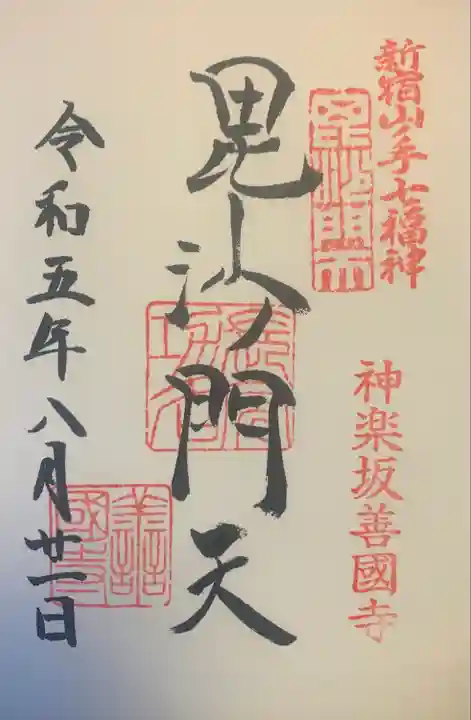 新宿山ノ手七福神
神楽坂善國寺
毘沙門天
令和五年八月廿一日
善國寺